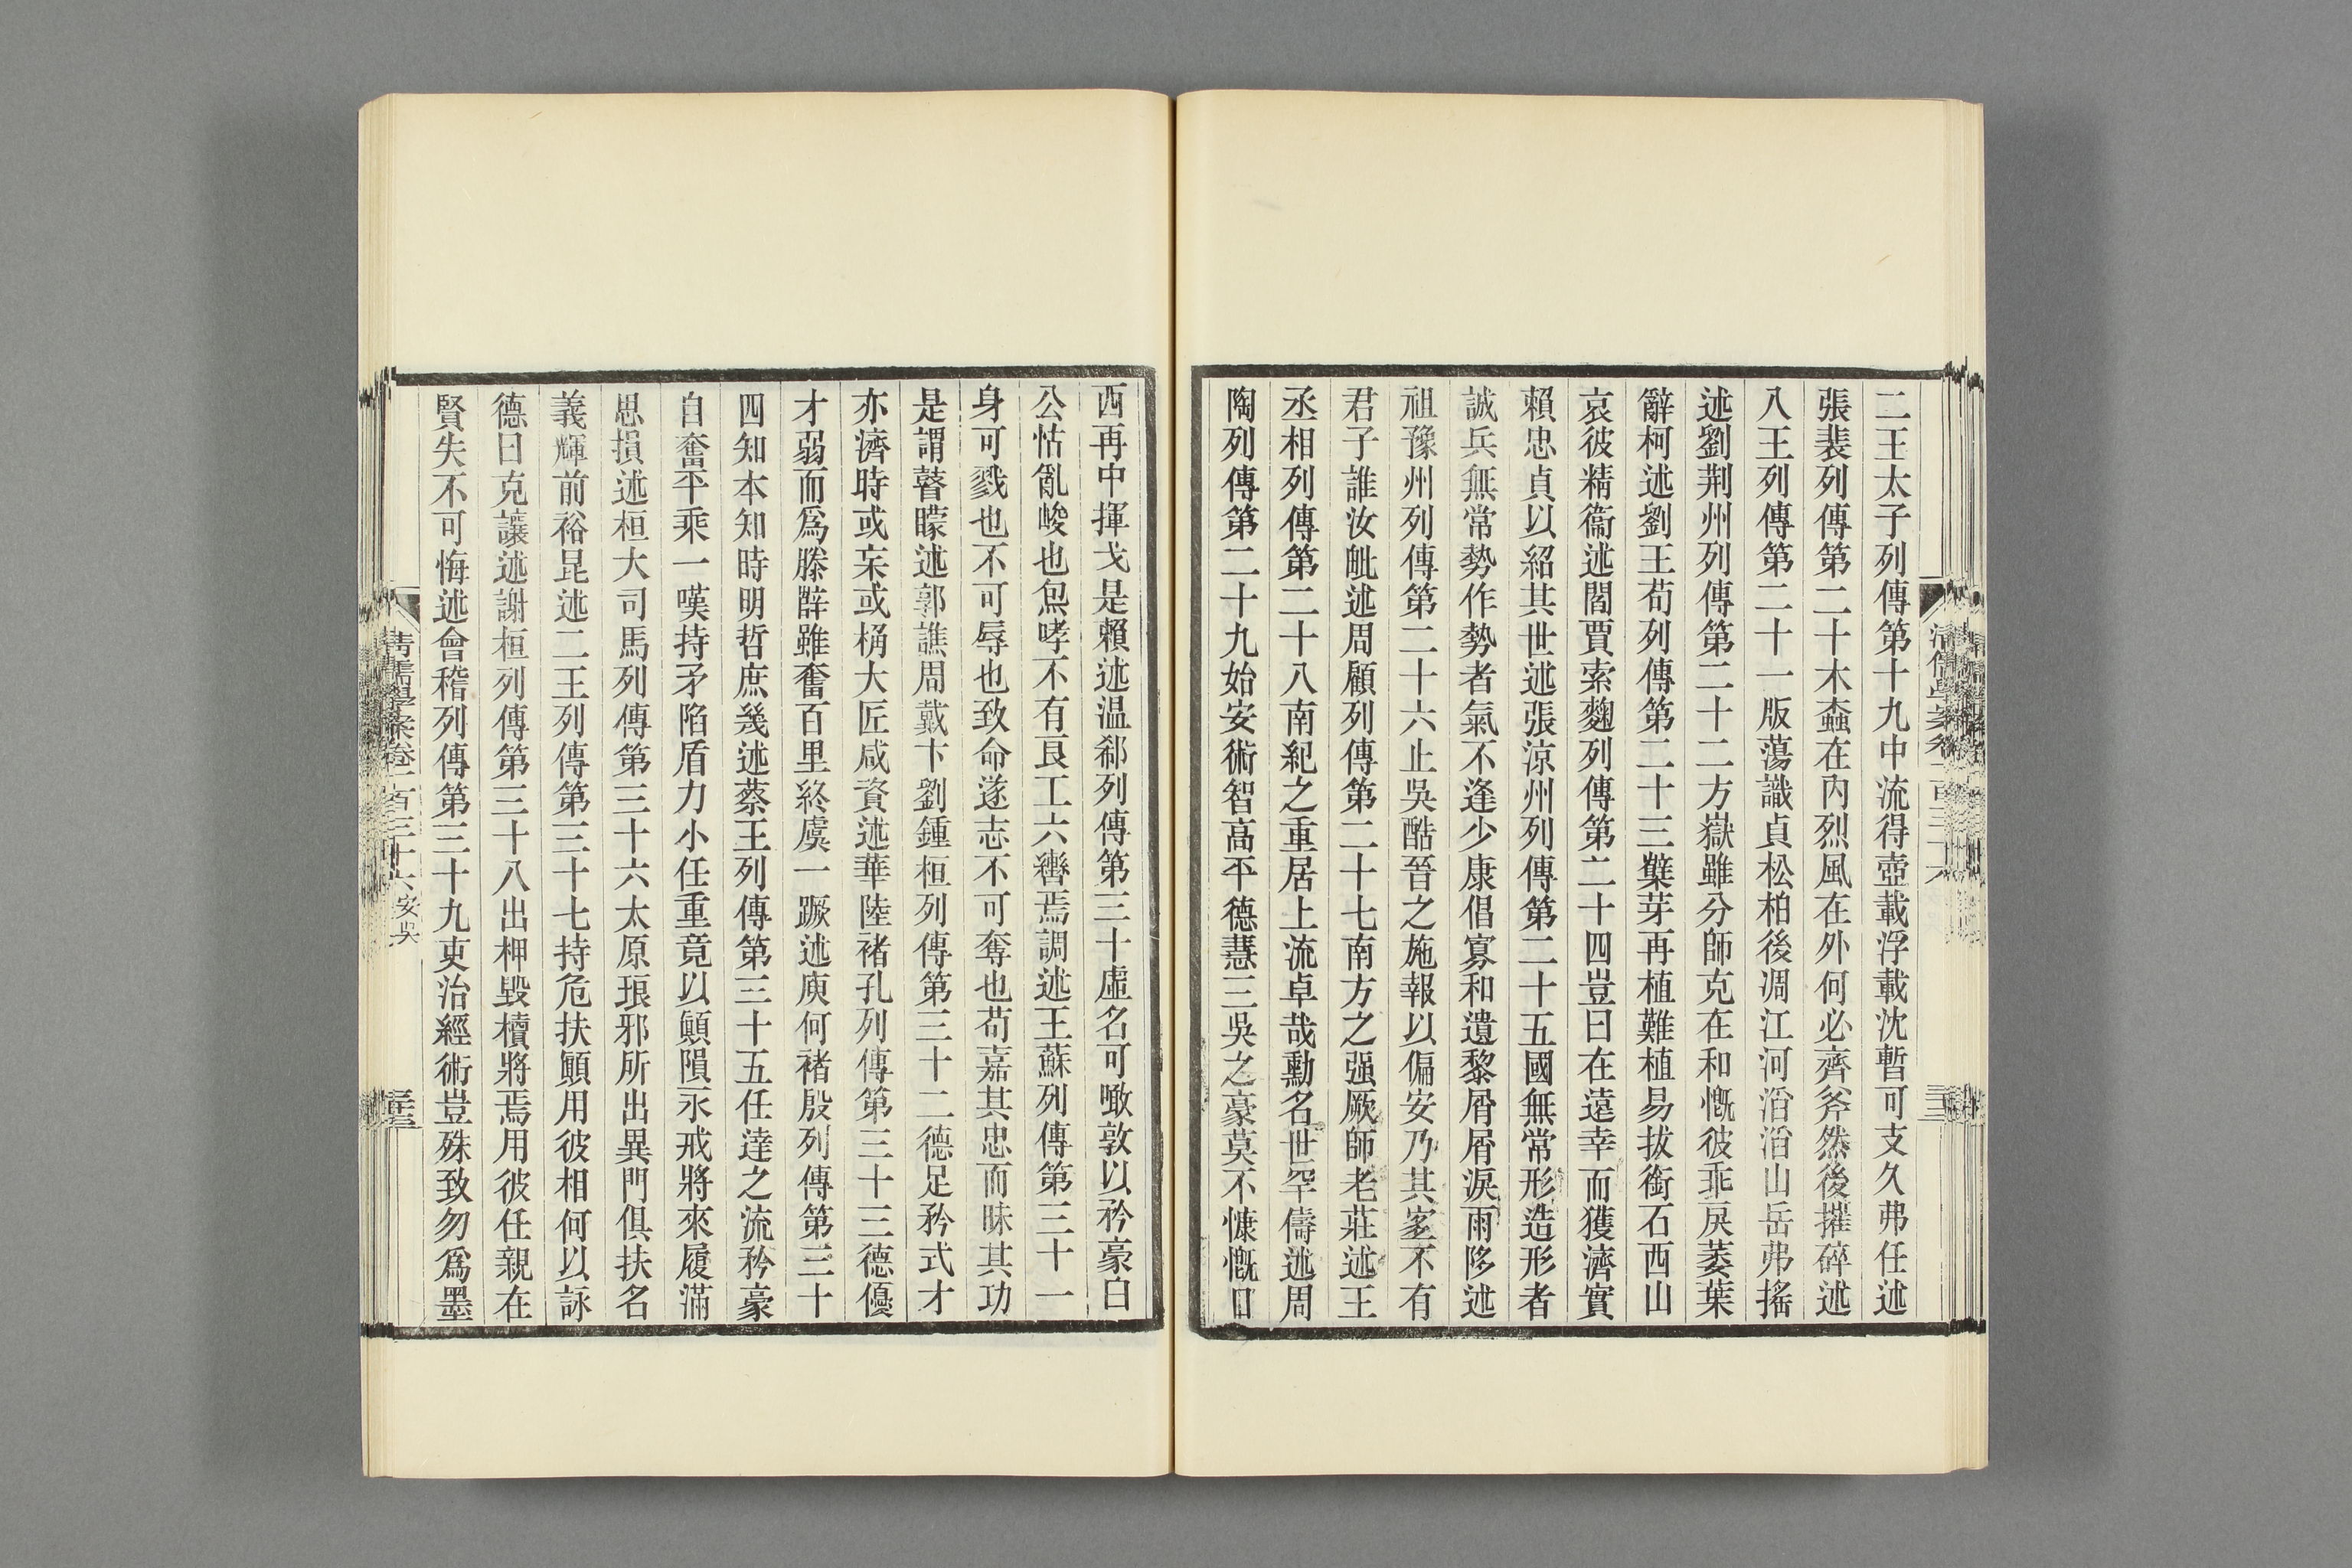 二王太子列傳第十九中流得壺載浮載沈暫可支久弗任述
張裴列傳第二十木蠧在內烈風在外何必齊斧然後摧碎述
八王列傳第二十一版蕩識貞松柏後凋江河滔滔山岳弗搖
述劉荆州列傳第二十二方嶽雖分師克在和慨彼乖戾萎葉
辭柯述劉王苟列傳第二十三櫱芽再植難植易拔銜石西山
哀彼精衞述閻賈索麴列傳第二十四豈曰在遠幸而獲濟實
賴忠貞以紹其世述張涼州列傳第二十五國無常形造形者
誠兵無常勢作勢者氣不逢少康倡寡和遺黎屑屑淚雨陊述
祖豫州列傳第二十六止吳酷晉之施報以偏安乃其家不有
君子誰汝毗述周顧列傳第二十七南方之强厥師老莊述王
丞相列傳第二十八南紀之重居上流卓哉勳名世罕儔述周
陶列傳第二十九始安術智高平德慧三吳之豪莫不慷慨日
西再中揮戈是賴述温郗列傳第三十虛名可噉敦以矜豪白
公怙亂峻也炰哮不有艮工六轡焉調述王蘇列傳第三十一
身可戮也不可辱也致命遂志不可奪也苟嘉其忠而昧其功
是謂瞽矇述郭譙周戴卞劉鍾桓列傳第三十二德足矜式才
亦濟時或宋或桷大匠咸資述華陸褚孔列傳第三十三德優
才弱而爲滕辥雖奮百里終虞一蹶述庾何褚殷列傳第三十
四知本知時明哲庶幾述蔡王列傳第三十五任達之流矜豪
自奮平乘一嘆持矛陷盾力小任重竟以顚隕永戒將來履滿
思損述桓大司馬列傳第三十六太原琅邪所出異門俱扶名
義輝前裕昆述二王列傳第三十七持危扶顚用彼相何以詠
德曰克讓述謝桓列傳第三十八出柙毀櫝將焉用彼任親在
賢失不可悔述會稽列傳第三十九吏治經術豈殊致勿爲墨
清儒學案卷一百三十六 安吳